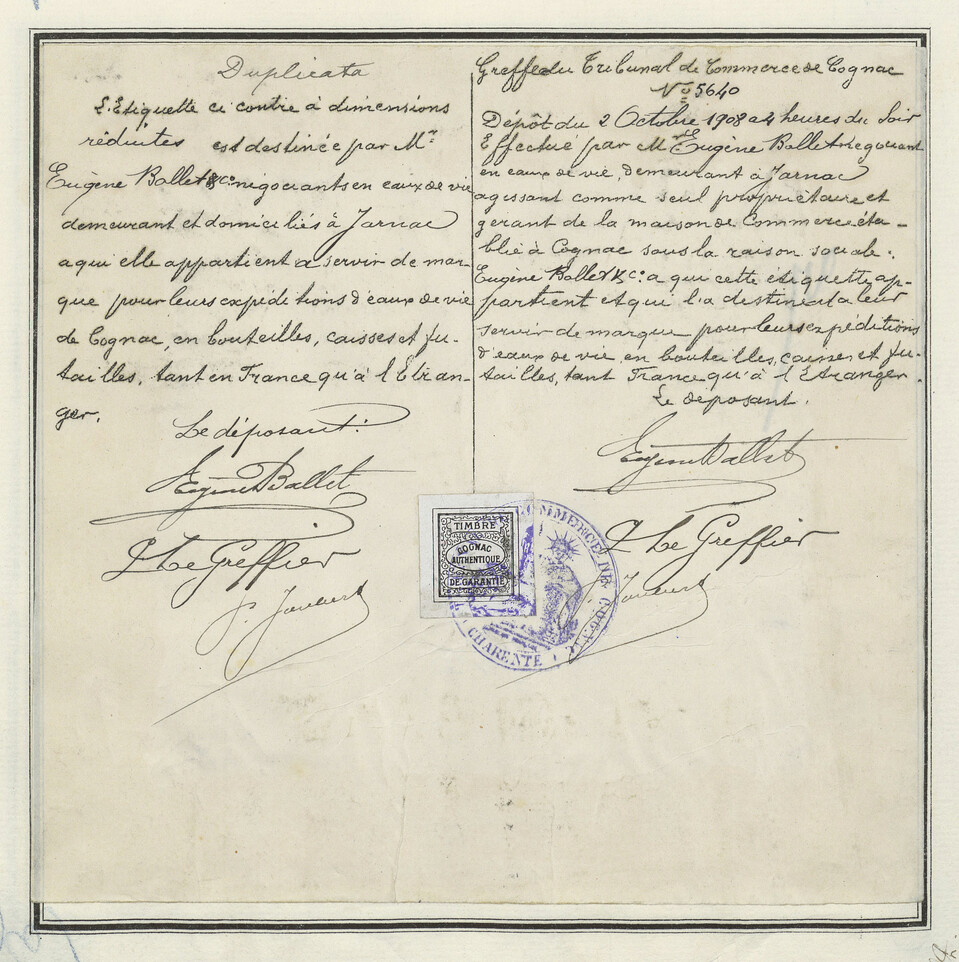 Duplicata
L'Etiquette ci contre à dimensions
réduites est destinée par Mrs
Eugène Ballet & Cie négociants en eaux de vie
demeurant et domiciliés à Jarnac
a qui elle appartient a servir de mar-
que pour leurs expéditions d'eaux de vie
de Cognac, en bouteilles, caisses et fu-
tailles, tant en France qu'à l'Etran-
ger.
Le déposant:
Eugène Ballet
Le Greffier
Greffe du Tribunal de Commerce de Cognac
No 5640
Dépôt du 2 Octobre 1908 a 4 heures du Soir
Effectué par Mr Eugène Ballet négociant
en eaux de vie, demeurant à Jarnac
agissant comme seul propriétaire et
gerant de la maison de Commerce éta-
blie à Cognac sous la raison sociale:
Eugène Ballet & Cie a qui cette etiquette ap-
partient et qui l'a destinée a leur
servir de marque pour leurs expéditions
d'eaux de vie, en bouteilles, caisses et fu-
tailles, tant France qu'à l'Etranger.
Le déposant.
Eugène Ballet
Le Greffier
TIMBRE
COGNAC
AUTHENTIQUE
DE GARANTIE
COMMERCE DE COGNAC
CHARENTE